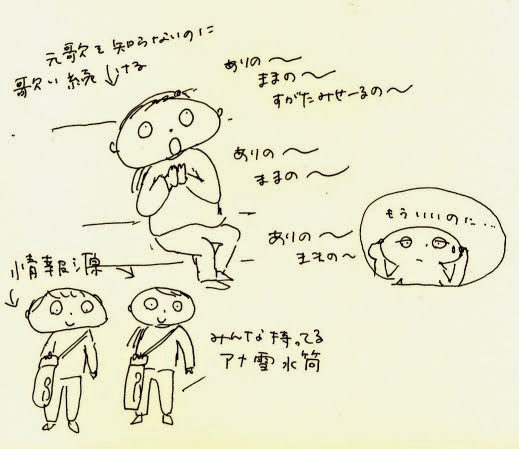 元歌を知らないのに
歌い続ける
ありの〜
ままの〜
すがたみせーるの〜
ありの〜
ままの〜
ありの〜
ままの〜
もういいのに…
情報源
みんな持ってる
アナ雪水筒